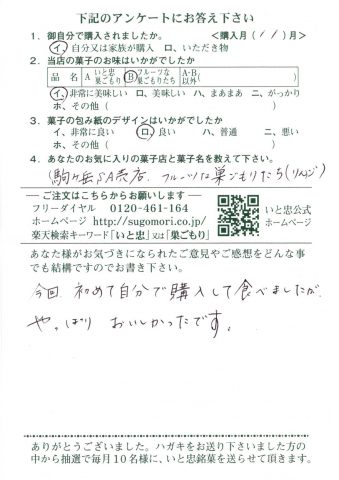 下記のアンケートにお答え下さい
1. 御自分で購入されましたか。 <購入月( 11 )月>
イ、自分又は家族が購入 ロ、いただき物
2. 当店の菓子のお味はいかがでしたか
品 名 A いと忠 巣ごもり B フルーツな 巣ごもりたち A・B 以外( )
イ、非常に美味しい ロ、美味しい ハ、まあまあ ニ、がっかり
ホ、その他 ( )
3. 菓子の包み紙のデザインはいかがでしたか
イ、非常に良い ロ、良い ハ、普通 ニ、悪い
ホ、その他 ( )
4. あなたのお気に入りの菓子店と菓子名を教えて下さい。
(駒ヶ岳SA売店、フルーツな巣ごもりたち(りんご)
― ご注文はこちらからお願いします ―
フリーダイヤル 0120-461-164
ホームページ http://sugomori.co.jp/
楽天検索キーワード「いと忠」又は「巣ごもり」
いと忠公式
ホームページ
あなた様がお気づきになられたご意見やご感想をどんな事
でも結構ですのでお書き下さい。
今回、初めて自分で購入して食べましたが、
やっぱり おいしかったです。
ありがとうございました。ハガキをお送り下さいました方の
中から抽選で毎月10名様に、いと忠銘菓を送らせて頂きます。